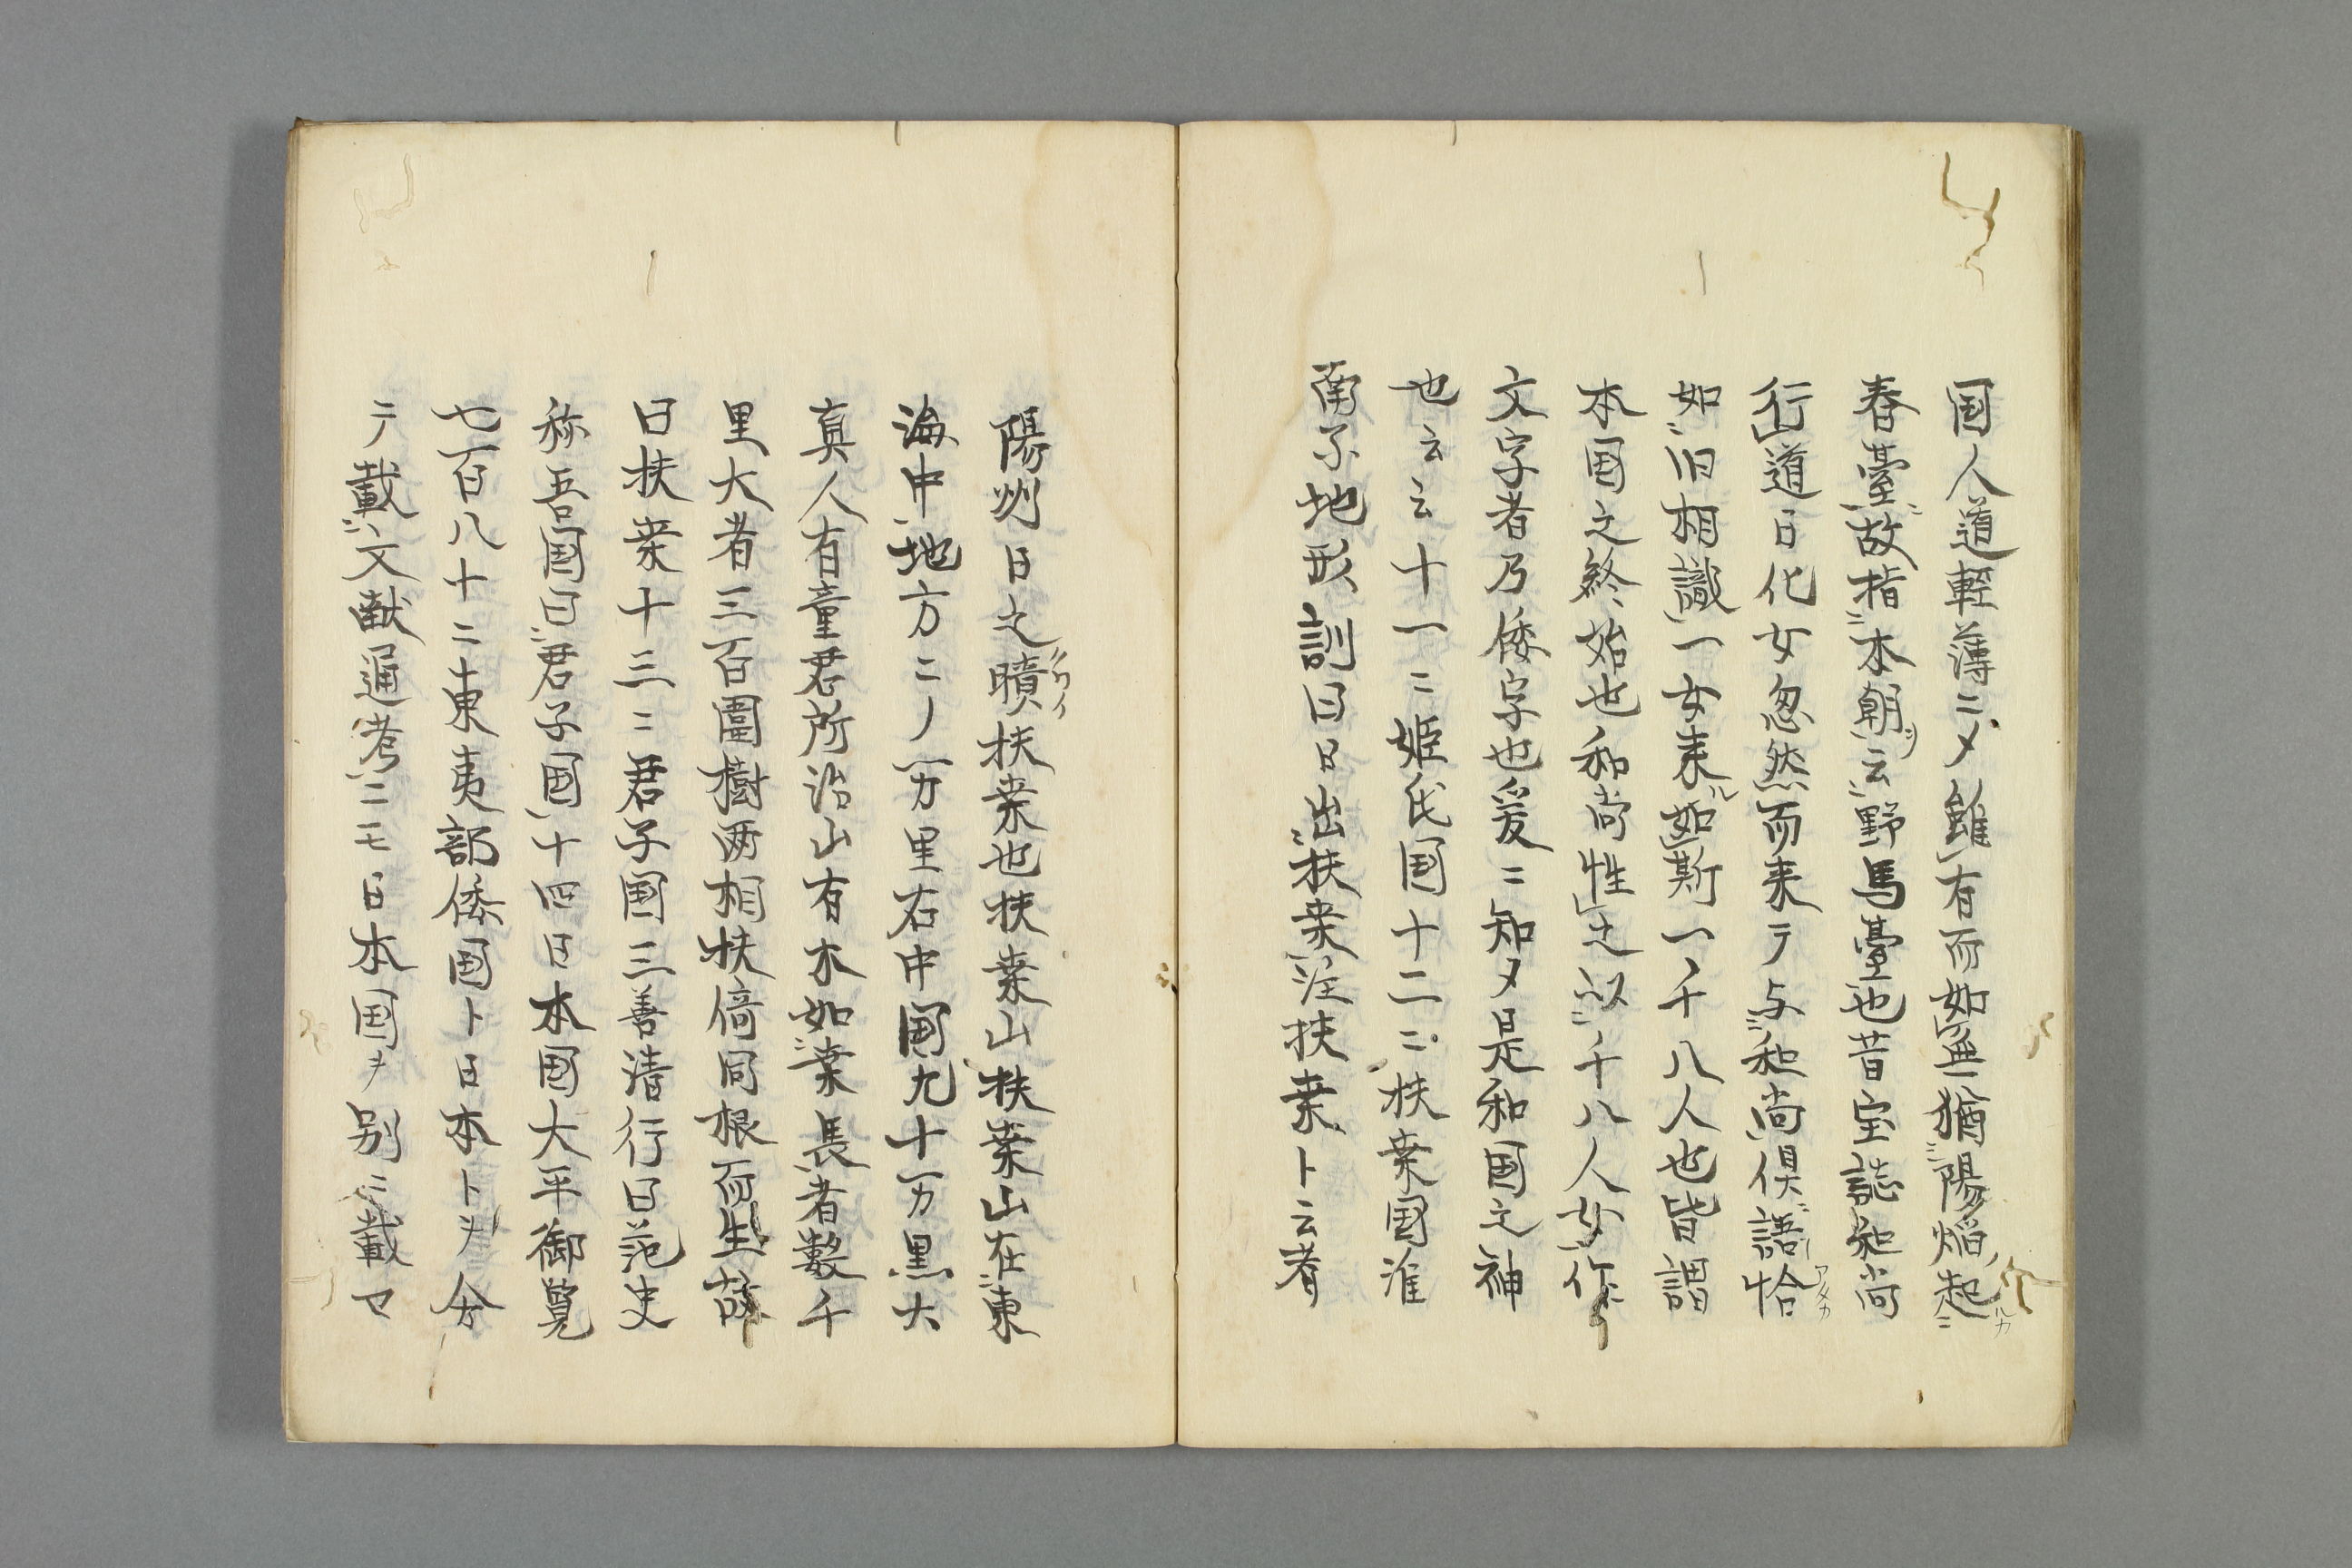 国人道軽薄ニメ雖有而如無猶陽焔起ニ
春臺故指本朝云野馬臺也昔宝誌和尚
行道日化女忽然而来テ与和尚倶語恰
如旧相識一女来如斯一千八人也皆語
本国之終始也和尚怪之以千八人女作
文字者乃倭字也爰ニ知ヌ是和国之神
也云云十一ニ姫氏国十二ニ扶桑国淮
南子地形訓曰日出扶桑注扶桑ト云者
陽州日之曊扶桑也扶桑山扶桑山在東
海中地方二ノ一万里右中国九十一万里大
真人有童君所治山有木如葉長者数千
里大者三百圍樹両相扶倚同根而生故
曰扶桑十三ニ君子国三善清行曰范史
称吾国曰君子国十四日本国大平御覧
七百八十二東夷部倭国ト日本ト ヲ 余
テ載文献通考ニモ日本国ヲ別ニ載マ